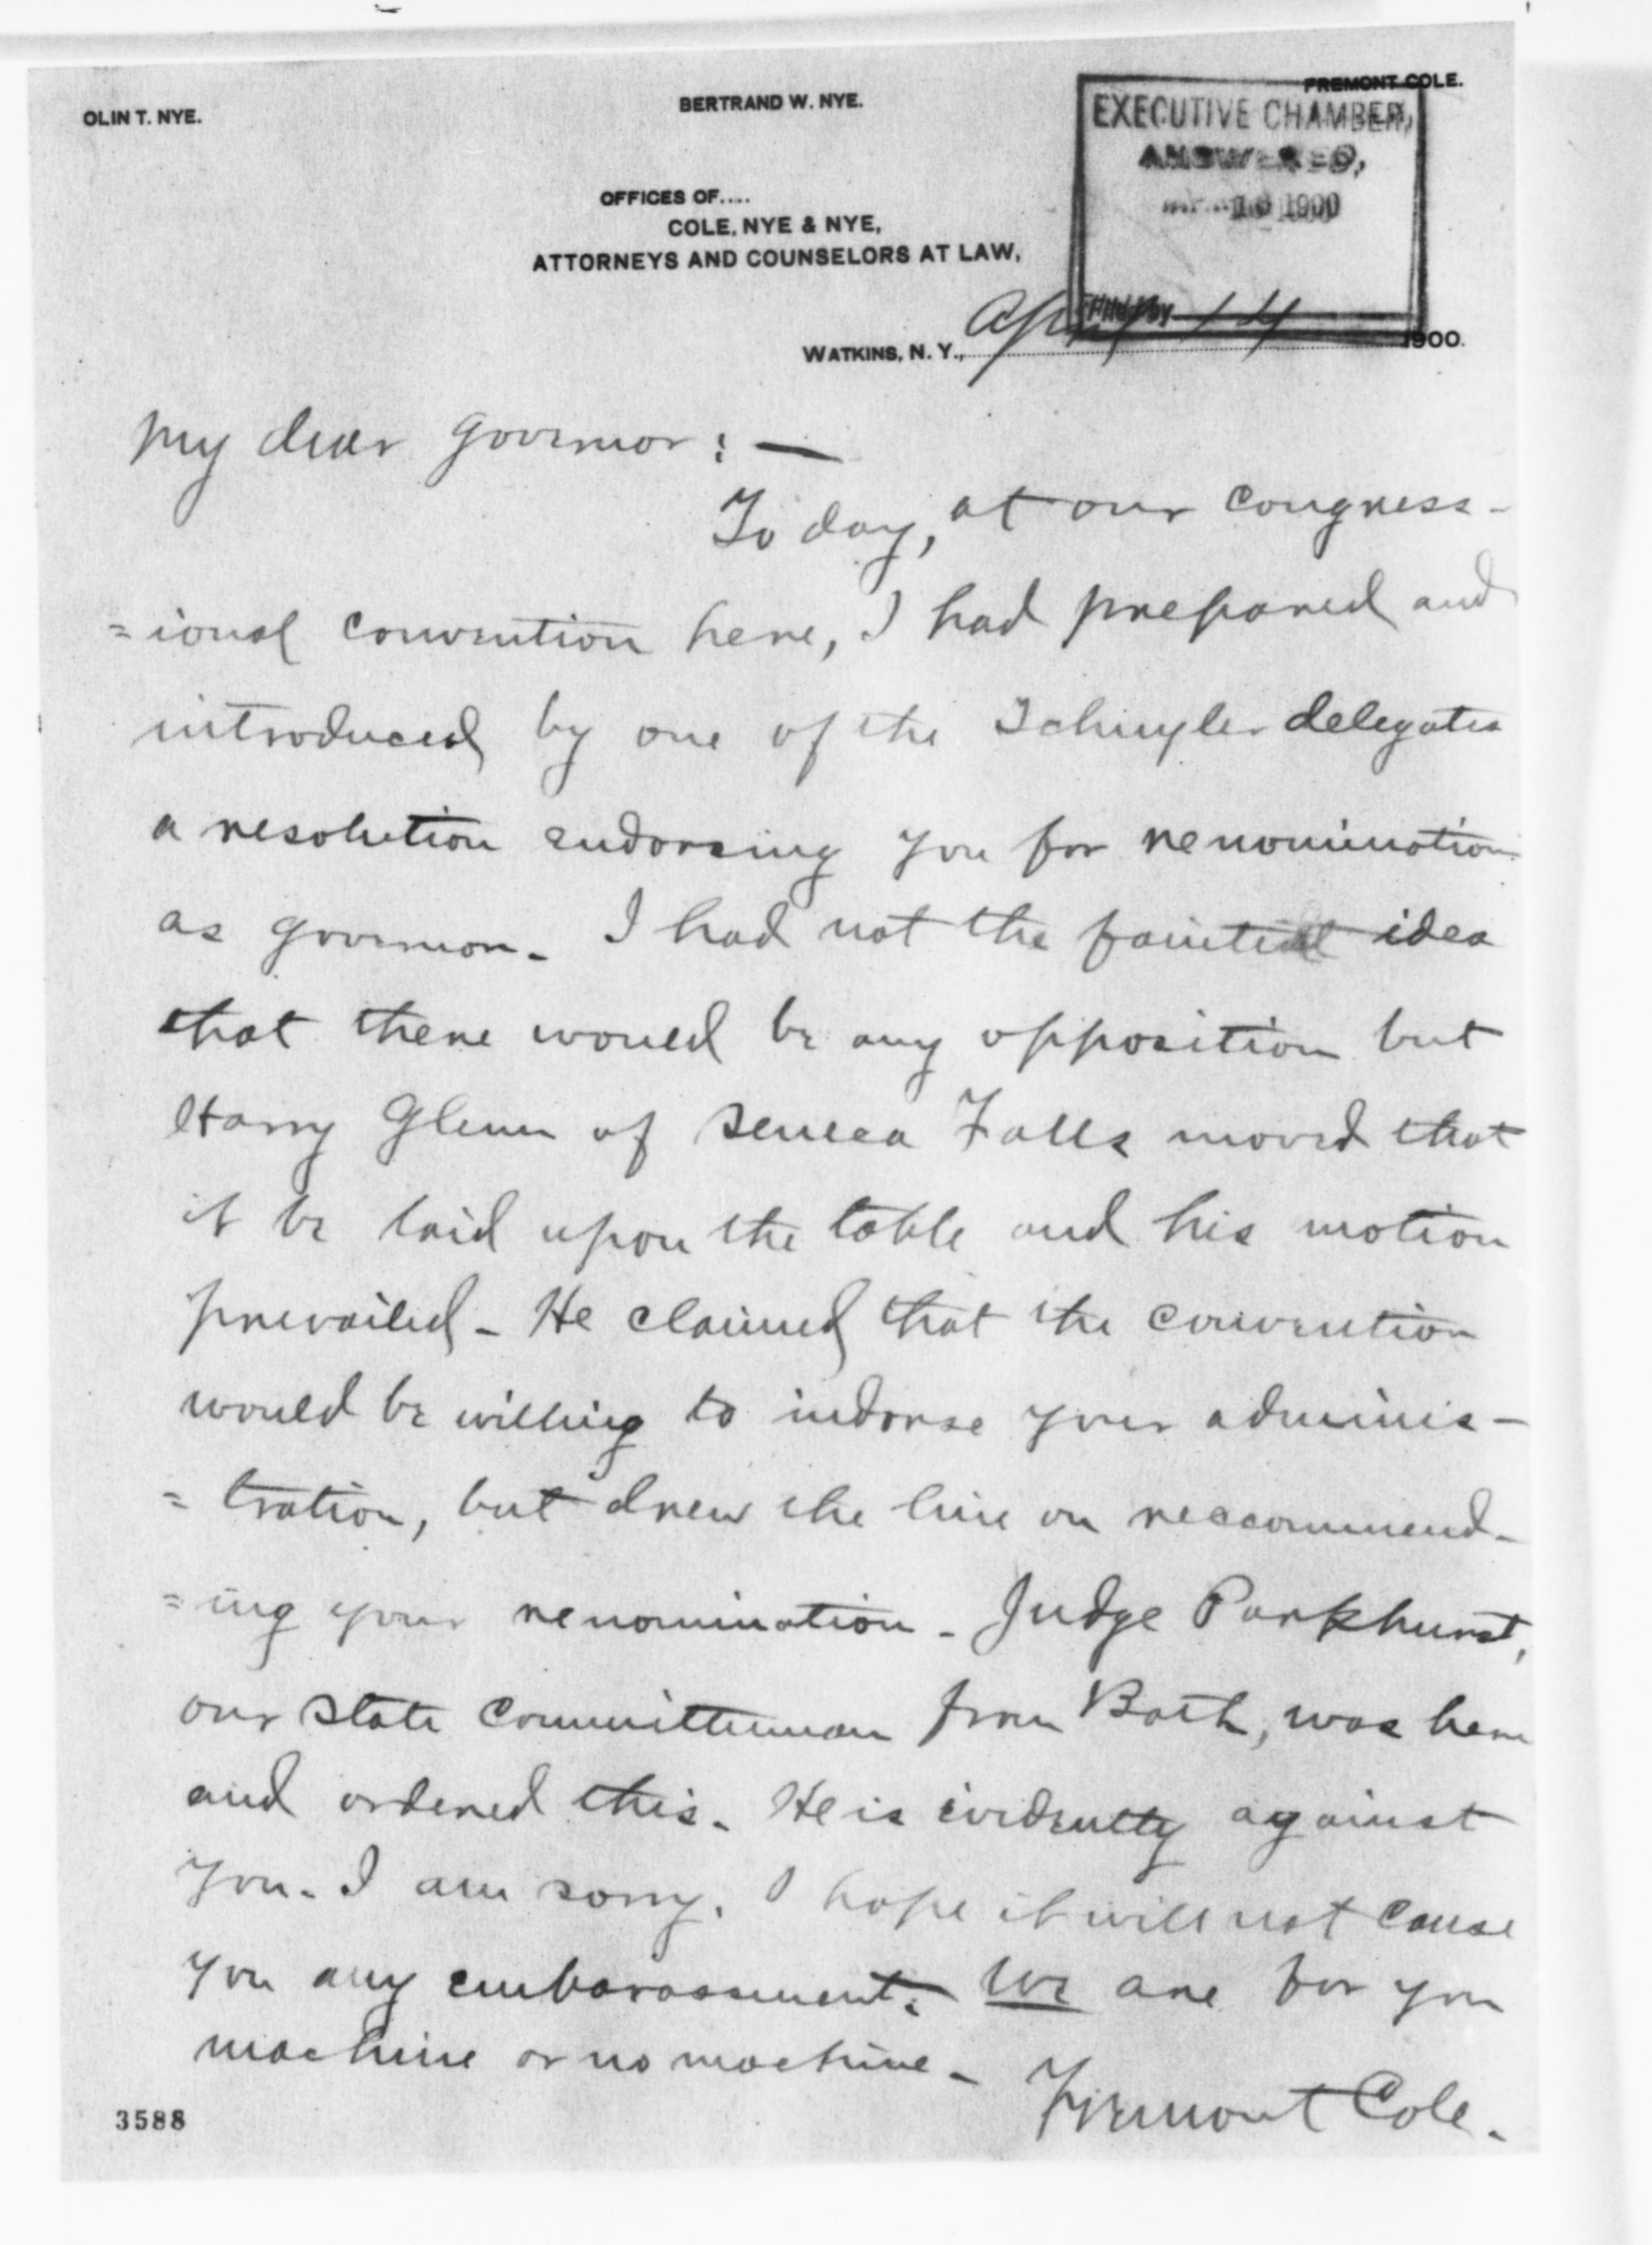 OLIN T. NYE.
BERTRAND W. NYE.
FREMONT COLE.
EXECUTIVE CHAMBER,
ANSWERED,
16 1900
OFFICES OF....
COLE, NYE & NYE,
ATTORNEYS AND COUNSELORS AT LAW,
WATKINS, N. Y., April 14 1900.
My dear Governor: —
To day, at our congress-
=ional convention here, I had prepared and
introduced by one of the Schuyler delegates
a resolution endorsing you for renomination
as governor. I had not the faintest idea
that there would be any opposition but
Harry Glenn of Seneca Falls moved that
it be laid upon the table and his motion
prevailed - He claimed that the convention
would be willing to indorse your adminis-
=tration, but drew the line on reccommend-
=ing your renomination - Judge Parkhurst,
our State Committeeman from Bath, was here
and ordered this. He is evidently against
you. I am sorry. I hope it will not cause
you any embarassment. We are for you
machine or no machine -
Fremont Cole.
3588